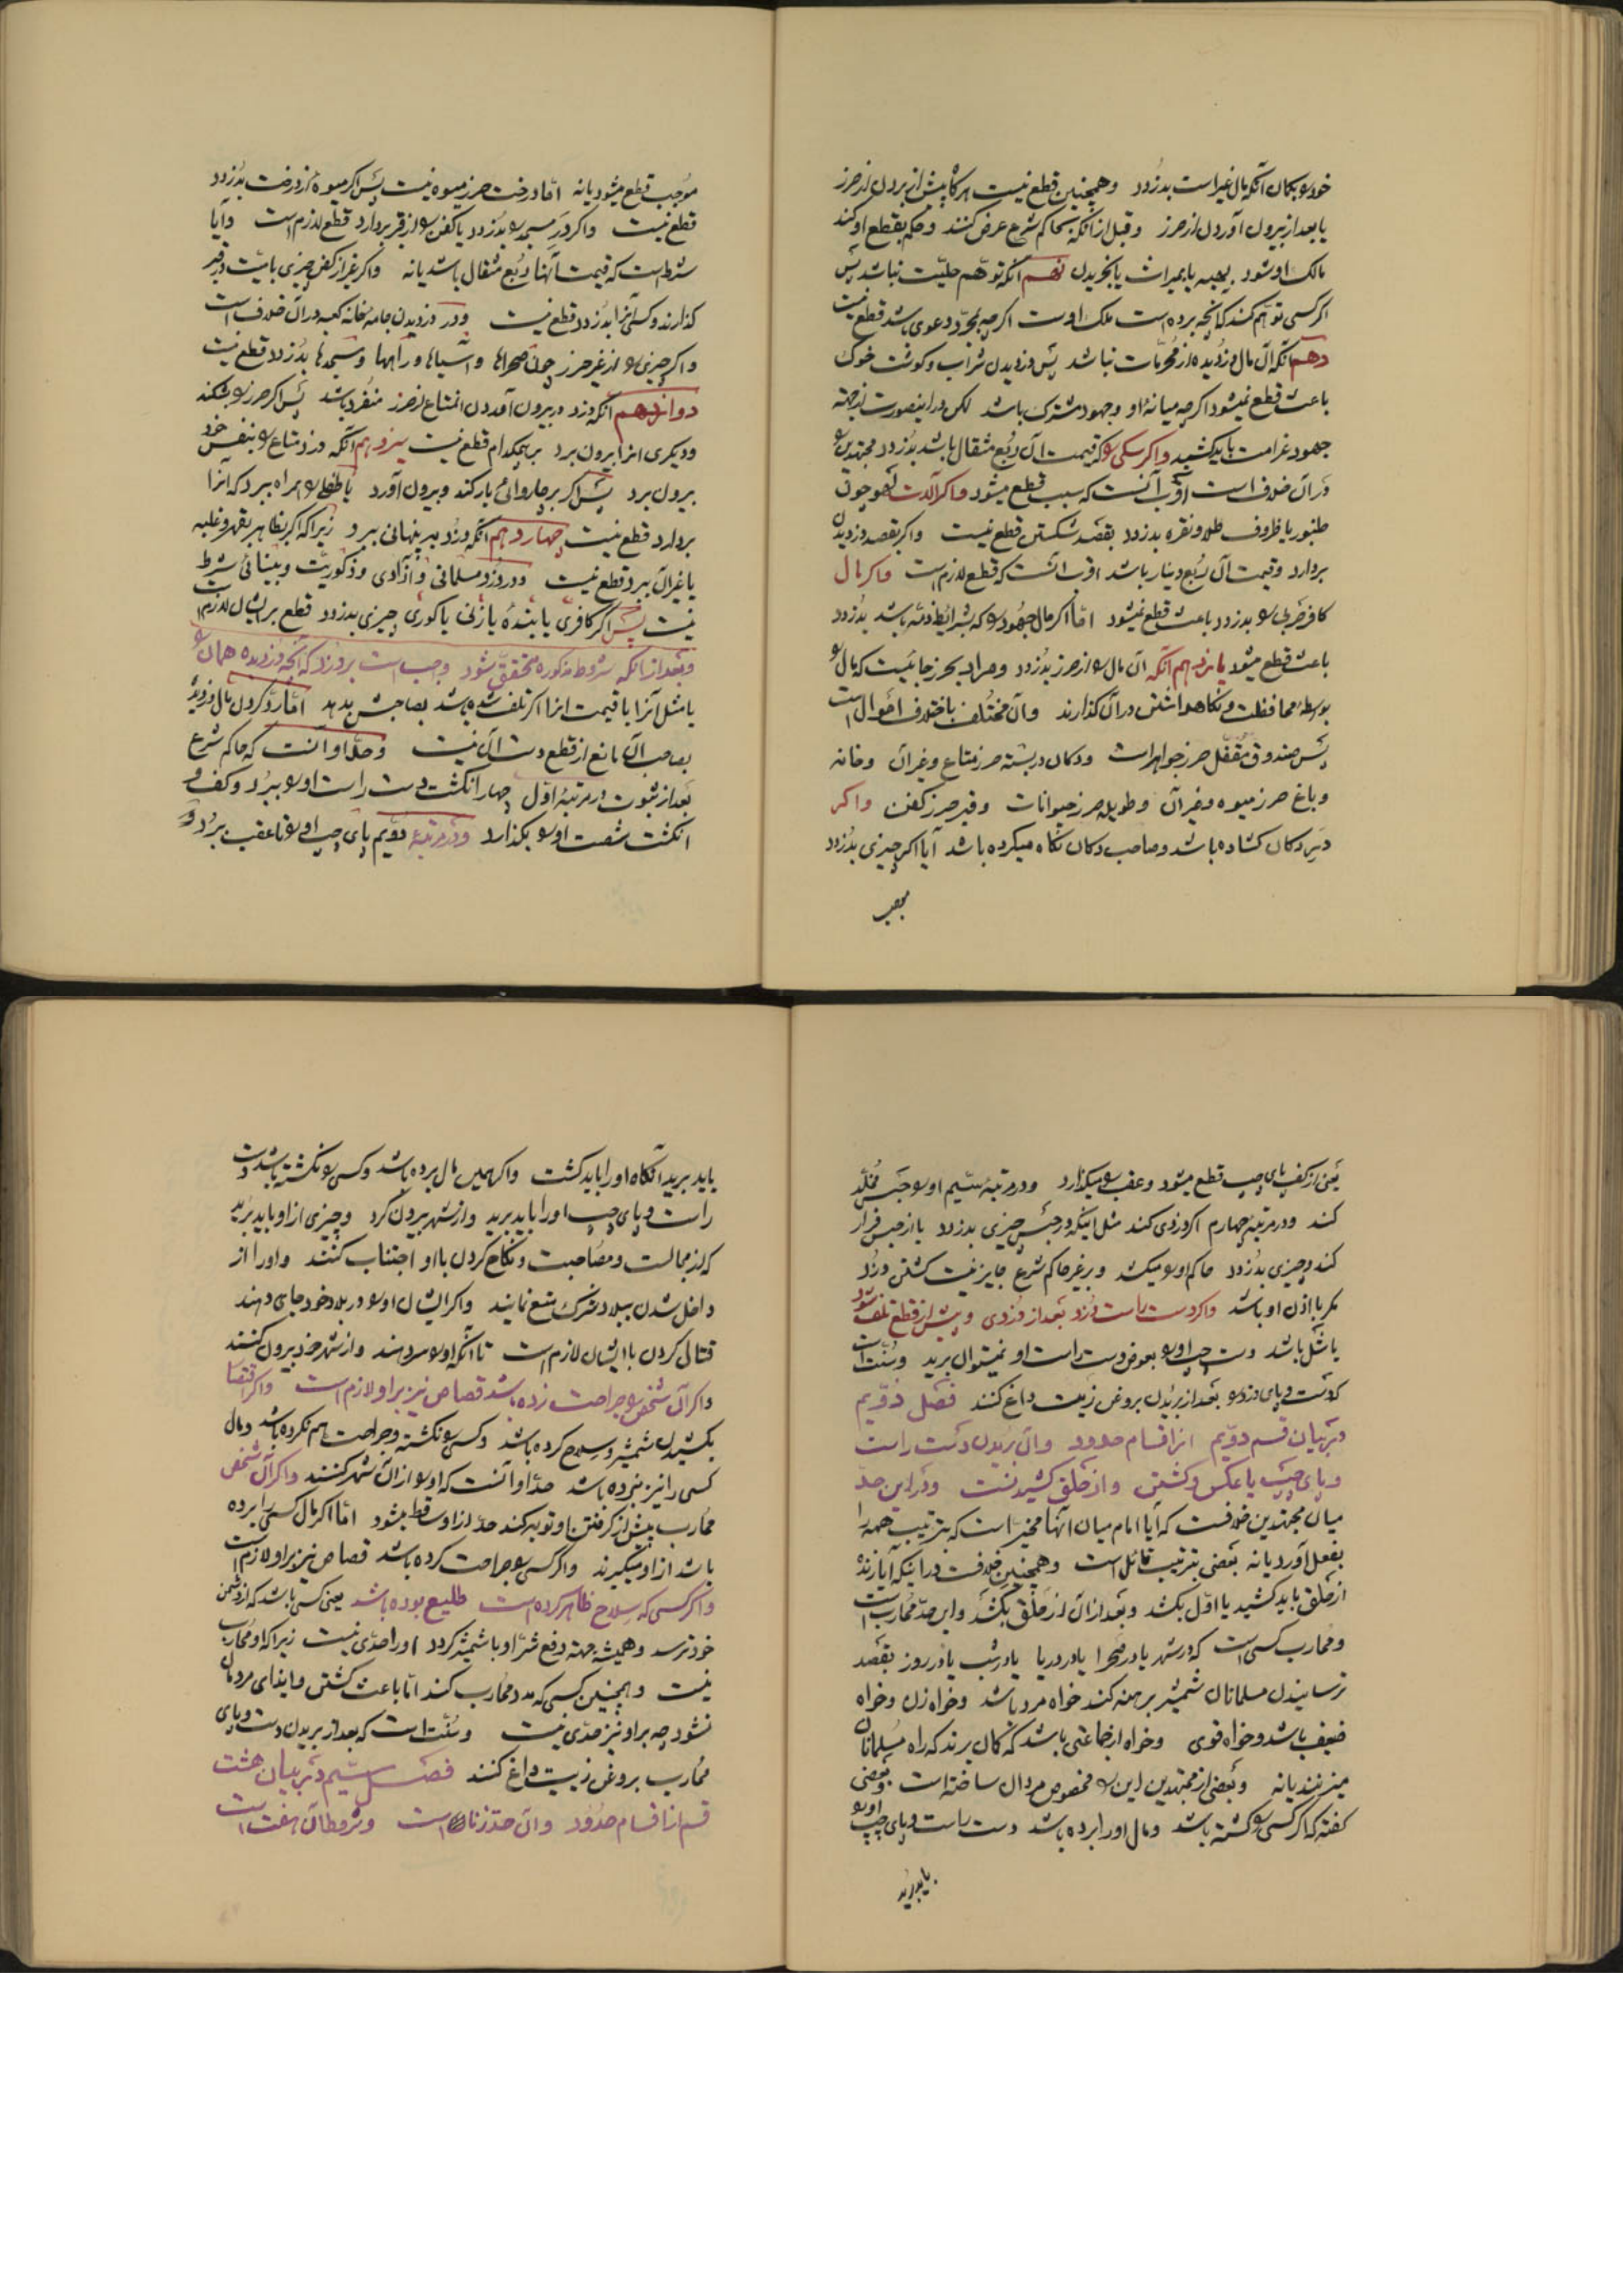 خود را بکمان آنکه مال غیر است بدزدد وهمچنین قطع نیست هرگاه پیش از بردن از حرز
یا بعد از بیرون آوردن از حرز وقبل از آنکه بحاکم شرع عرض کنند وحکم بقطع او کند
مالک او شود بهبه یا بمیراث یا بخریدن نهم آنکه توهّم حلیّت نباشد پس
اکر کسی توهم کند که آنچه برده است ملک اوست اکرچه بمجرّد دعوی باشد قطع نیست
دهم آنکه آن مال دزدیده از محرّمات نباشد پس دزدیدن شراب وکوشت خوک
باعث قطع نمیشود اکرچه میانهٔ او وجهود مشترک باشد لکن در اینصورت از حصّهٔ
جهود غرامت باید کشید واکر سکی را که قیمت آن ربع مثقال باشد بدزدد مجتهدین را
در آن خلاف است اقرب آنست که سبب قطع میشود واکر آلات لهو چون
طنبور یا ظروف طلا ونقره بدزدد بقصد شکستن قطع نیست واکر بقصد دزدیدن
بردارد وقیمت آن ربع دینار باشد اقرب آنست که قطع لازم است واکر مال
کافر حربی را بدزدد باعث قطع نمیشود امّا اکر مال جهود را که بشرائط ذمّه باشد بدزدد
باعث قطع میشود یازدهم آنکه آن مال را از حرز بدزدد ومراد بحرز جائیست که مال را
بواسطه محافظت ونکاهداشتن در آن کذارند وآن مختلف باختلاف احوال است
پس صندوق مقفّل حرز جواهر است ودکان در بسته حرز متاع وغیر آن وخانه
وباغ حرز میوه وغیر آن وطویله حرز حیوانات وقبر حرز کفن واکر
در دکان کشاده باشد وصاحب دکان نکاه میکرده باشد آیا اکر چیزی بدزدد
موجب
موجب قطع میشود یا نه امّا درخت حرز میوه نیست پس اکر میوه از درخت بدزدد
قطع نیست واکر در مسجد را بدزدد یا کفن را از قبر بردارد قطع لازم است وآیا
شرط است که قیمت آنها ربع مثقال باشد یا نه واکر غیر از کفن چیزی با میّت در قبر
کذارند وکسی آنرا بدزدد قطع نیست ودر دزدیدن جامه خانه کعبه در آن خلاف است
واکر چیزی را از غیر حرز چون صحراها وآسیاها وراهها ومسجدها بدزدد قطع نیست
دوازدهم آنکه دزد در بیرون آوردن آن متاع از حرز منفرد باشد پس اکر حرز را بشکند
ودیکری آنرا بیرون برد بر هیچکدام قطع نیست سیزدهم آنکه دزد متاع را بنفس خود
بیرون برد پس اکر بر چاروائی بار کند وبیرون آورد یا طفلی را همراه ببرد که آنرا
بردارد قطع نیست چهاردهم آنکه دزد به پنهانی ببرد زیرا که اکر بظاهر بقهر وغلبه
یا غیر آن ببرد قطع نیست ودر دزد مسلمانی وآزادی وذکوریّت وبینائی شرط
نیست پس اکر کافری یا بندهٔ یا زنی یا کوری چیزی بدزدد قطع بر ایشان لازم است
وبعد از آنکه شروط مذکوره متحقق شود واجب است بر دزد که آنچه دزدیده همان را
یا مثل آنرا یا قیمت آنرا اکر تلف شده باشد بصاحبش بدهد امّا رد کردن مال دزدیده
بصاحب آن مانع از قطع دست آن نیست وحدّ او آنست که حاکم شرع
بعد از ثبوت در مرتبهٔ اوّل چهار انکشت دست راست او را ببرد وکف و
انکشت شصت او را بکذارد ودر مرتبهٔ دویم پای چپ او را تا عقب ببرد و
یعنی از کف پای چپ قطع میشود وعقب را میکذارد ودر مرتبهٔ سیّم او را حبس مخلّد
کند ودر مرتبهٔ چهارم اکر دزدی کند مثل اینکه در حبس چیزی بدزدد یا از حبس فرار
کند وچیزی بدزدد حاکم او را میکشد وبر غیر حاکم شرع جایز نیست کشتن دزد
مکر باذن او باشد واکر دست راست دزد بعد از دزدی وپیش از قطع تلف شود
یا شل باشد دست چپ او را بعوض دست راست او نمیتوان برید وسنّت است
که دست وپای دزد را بعد از بریدن بروغن زیت داغ کنند فصل دوّیم
در بیان قسم دوّیم از اقسام حدود وآن بریدن دست راست
وپای چپ یا عکس وکشتن واز حلق کشیدنست ودر این حدّ
میان مجتهدین خلافست که آیا امام میان آنها مخیّر است که بترتیب همه را
بفعل آورد یا نه بعضی بترتیب قائل است وهمچنین خلافت در اینکه آیا زنده
از حلق باید کشید یا اوّل بکشد وبعد از آن از حلق بکشد واین حدّ محارب است
ومحارب کسی است که در شهر یا در صحرا یا در دریا یا در شب یا در روز بقصد
ترسانیدن مسلمانان شمشیر برهنه کند خواه مرد باشد وخواه زن وخواه
ضعیف باشد وخواه قوی وخواه از جماعتی باشد که کمان برند که راه مسلمانان
میزنند یا نه وبعضی از مجتهدین این را مخصوص مردان ساخته است وبعضی
کفته که اکر کسی را کشته باشد ومال او را برده باشد دست راست وپای چپ او را
باید برید
باید برید آنکاه او را باید کشت واکر همین مال برده باشد وکسی را نکشته باشد دست
راست وپای چپ او را باید برید واز شهر بیرون کرد وچیزی از او باید برید
که از مجالست ومصاحبت ونکاح کردن با او اجتناب کنند واو را از
داخل شدن ببلاد شرک منع نمایند واکر ایشان او را در بلاد خود جای دهند
قتال کردن با ایشان لازم است تا آنکه او را سر دهند واز شهر خود بیرون کنند
واکر آن شخص را جراحت زده باشد قصاص نیز بر او لازم است واکر اقتصار
بکشیدن شمشیر وسلاح کرده باشد وکسی را نکشته وجراحت هم نکرده باشد ومال
کسی را نیز نبرده باشد حدّ او آنست که او را از آن شهر کنند واکر آن شخص
محارب پیش از کرفتن او توبه کند حدّ از او ساقط میشود امّا اکر مال کسی را برده
باشد از او میکیرند واکر کسی را جراحت کرده باشد قصاص نیز بر او لازم است
واکر کسی که سلاح ظاهر کرده است طلیع بوده باشد یعنی کسی باشد که از دشمن
خود ترسد وهمیشه جهته دفع شرّ او با شمشیر کردد او را حدّی نیست زیرا که او محارب
نیست وهمچنین کسی که مدد محارب کند امّا باعث کشتن وایذای مردمان
نشود چه بر او نیز حدّی نیست وسنّت است که بعد از بریدن دست وپای
محارب بروغن زیت داغ کنند فصل سیّم در بیان هشت
قسم از اقسام حدود وآن حدّ زنا است وشروط آن هفت است